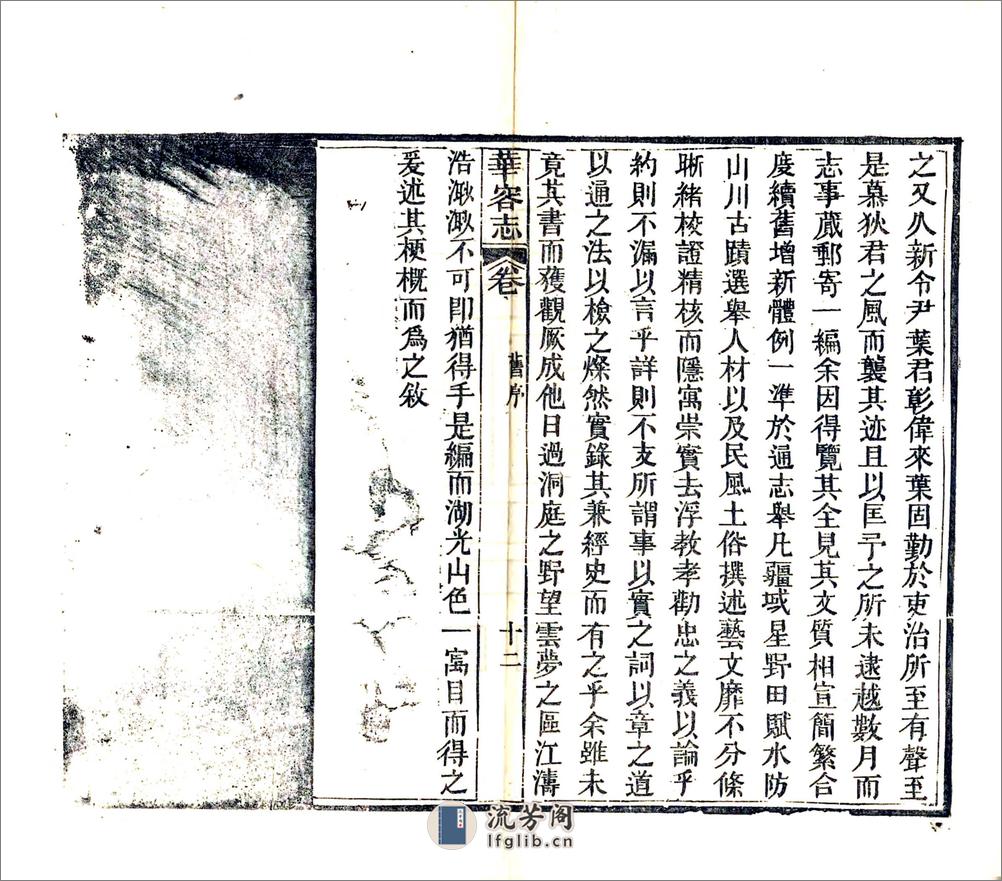 之又久新令尹葉君彰偉來葉固勤於吏治所至有聲至
是慕狄君之風而襲其迹且以匡予之所未逮越數月而
志事蕆郵寄一編余因得覽其全見其文質相宣簡繁合
度續舊增新體例一準於通志舉凡疆域星野田賦水防
山川古蹟選舉人材以及民風土俗撰述藝文靡不分條
晰緒校證精核而隱寓崇實去浮教孝勸忠之義以論乎
約則不漏以言乎詳則不支所謂事以實之詞以章之道
以通之法以檢之燦然實錄其兼經史而有之乎余雖未
竟其書而獲觀厥成他日過洞庭之野望雲夢之區江濤
華容志
卷
舊序
十二
浩淼淼不可即猶得手是編而湖光山色一寓目而得之
爰述其梗概而爲之敘
流芳阁
lfglib.cn